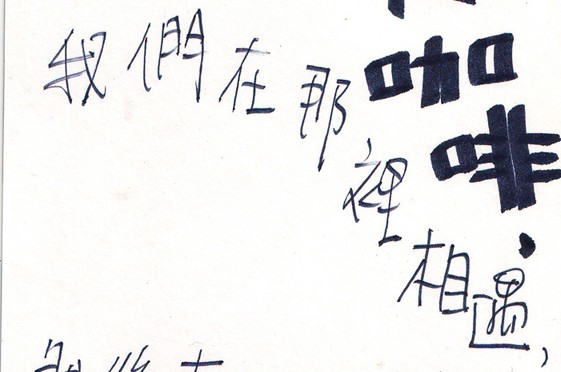 我們在那裡相遇,
咖啡,